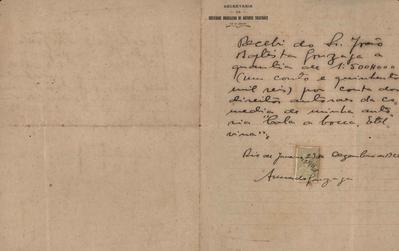 SECRETARIA
DA
SOCIEDADE BRASILEIRA DE AUTORES THEATRAES
Recebi do Sr. João
Baptista Gonzaga a
quantia de 1:500$000
(um conto e quinhentos
mil reis) por conta dos
direitos autoraes da co
media de minha auto
ria "Cala a bocca, Etel
vina".
Rio de Janeiro, 23 de Dezembro de
Armando Gonzaga